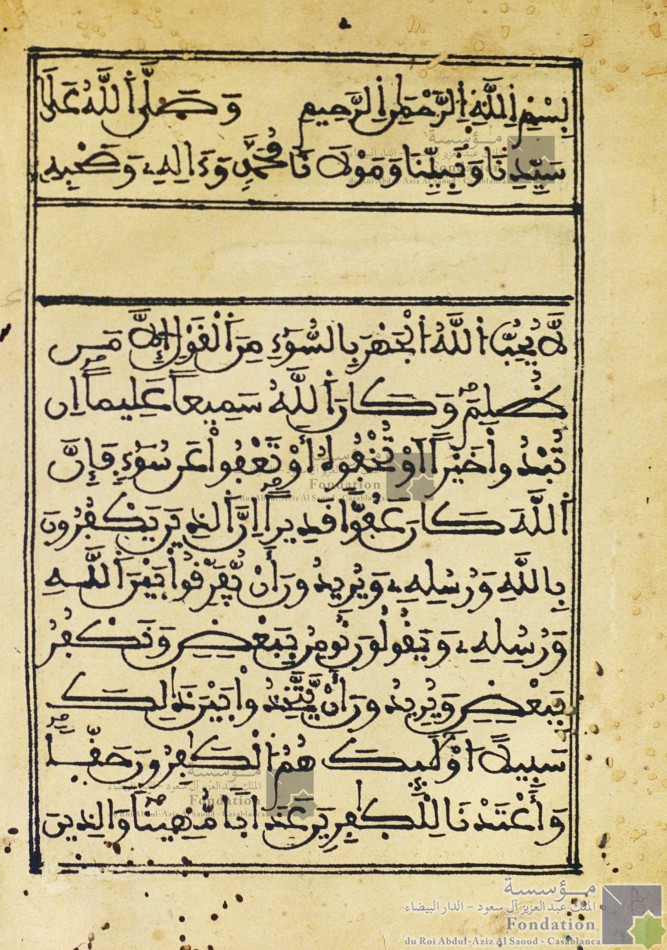 بِسْمِ اِ۬للَّهِ اِ۬لرَّحْمَٰنِ اِ۬لرَّحِيمِ وَصَلَّى اَ۬للَّهُ عَلَىٰ
سَيِّدِنَا وَنَبِيِّنَا وَمَوْلَانَا مُحَمَّدٍ وَءَالِهِۦ وَصَحْبِهِ
لَّا يُحِبُّ اُ۬للَّهُ اُ۬لْجَهْرَ بِالسُّوٓءِ مِنَ اَ۬لْقَوْلِ إِلَّا مَن
ظُلِمَ وَكَانَ اَ۬للَّهُ سَمِيعاً عَلِيماً اِن
تُبْدُواْ خَيْراً اَوْ تُخْفُوهُ أَوْ تَعْفُواْ عَن سُوٓءٍ فَإِنَّ
اَ۬للَّهَ كَانَ عَفُوّاً قَدِيراً اِنَّ اَ۬لذِينَ يَكْفُرُونَ
بِاللَّهِ وَرُسُلِهِۦ وَيُرِيدُونَ أَنْ يُّفَرِّقُواْ بَيْنَ اَ۬للَّهِ
وَرُسُلِهِۦ وَيَقُولُونَ نُومِنُ بِبَعْضٍ وَنَكْفُرُ
بِبَعْضٍ وَيُرِيدُونَ أَنْ يَّتَّخِذُواْ بَيْنَ ذَٰلِكَ
سَبِيلاً اُوْلَٰٓئِكَ هُمُ اُ۬لْكَٰفِرُونَ حَقّاً
وَأَعْتَدْنَا لِلْكَٰفِرِينَ عَذَاباً مُّهِيناً وَالذِينَ
مؤسسة
الملك عبد العزيز آل سعود - الدار البيضاء
Fondation
du Roi Abdul-Aziz Al Saoud - Casablanca